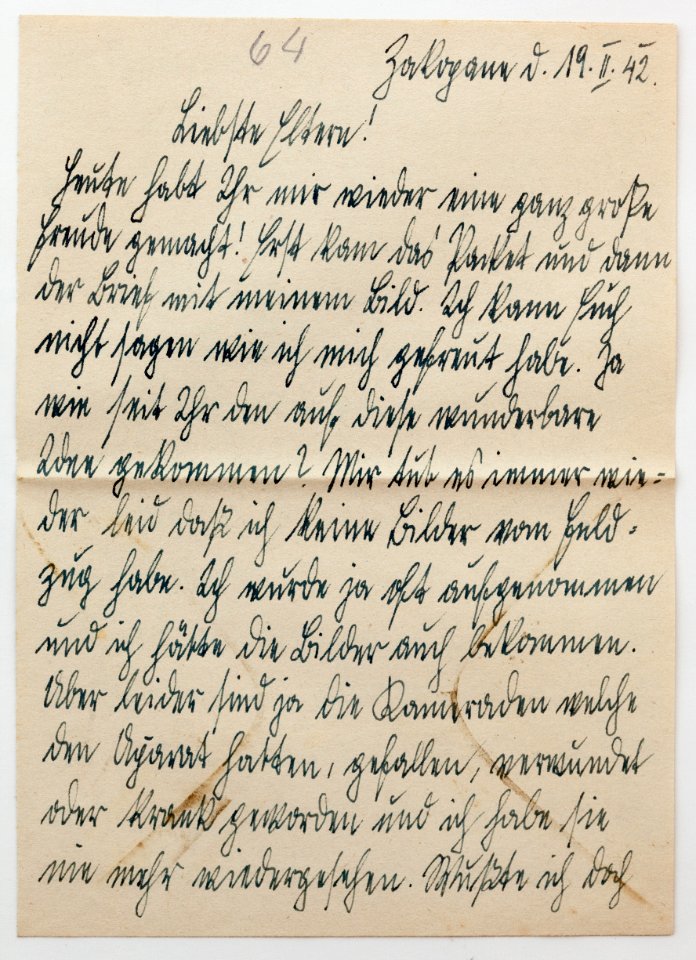 64
Zakopane d. 19.II.42.
Liebste Eltern!
Heute habt Ihr mir wieder eine ganz große
Freude gemacht! Erst kam das Packet und dann
der Brief mit meinem Bild. Ich kann Euch
nicht sagen wie ich mich gefreut habe. Ja
wie seit Ihr den auf diese wunderbare
Idee gekommen? Mir tut es immer wie=
der leid daß ich keine Bilder vom Feld=
zug habe. Ich wurde ja oft aufgenommen
und ich hätte die Bilder auch bekommen.
Aber leider sind ja die Kameraden welche
den Aparat hatten, gefallen, verwundet
oder krank geworden und ich habe sie
nie mehr wiedergesehen. Wußte ich doch